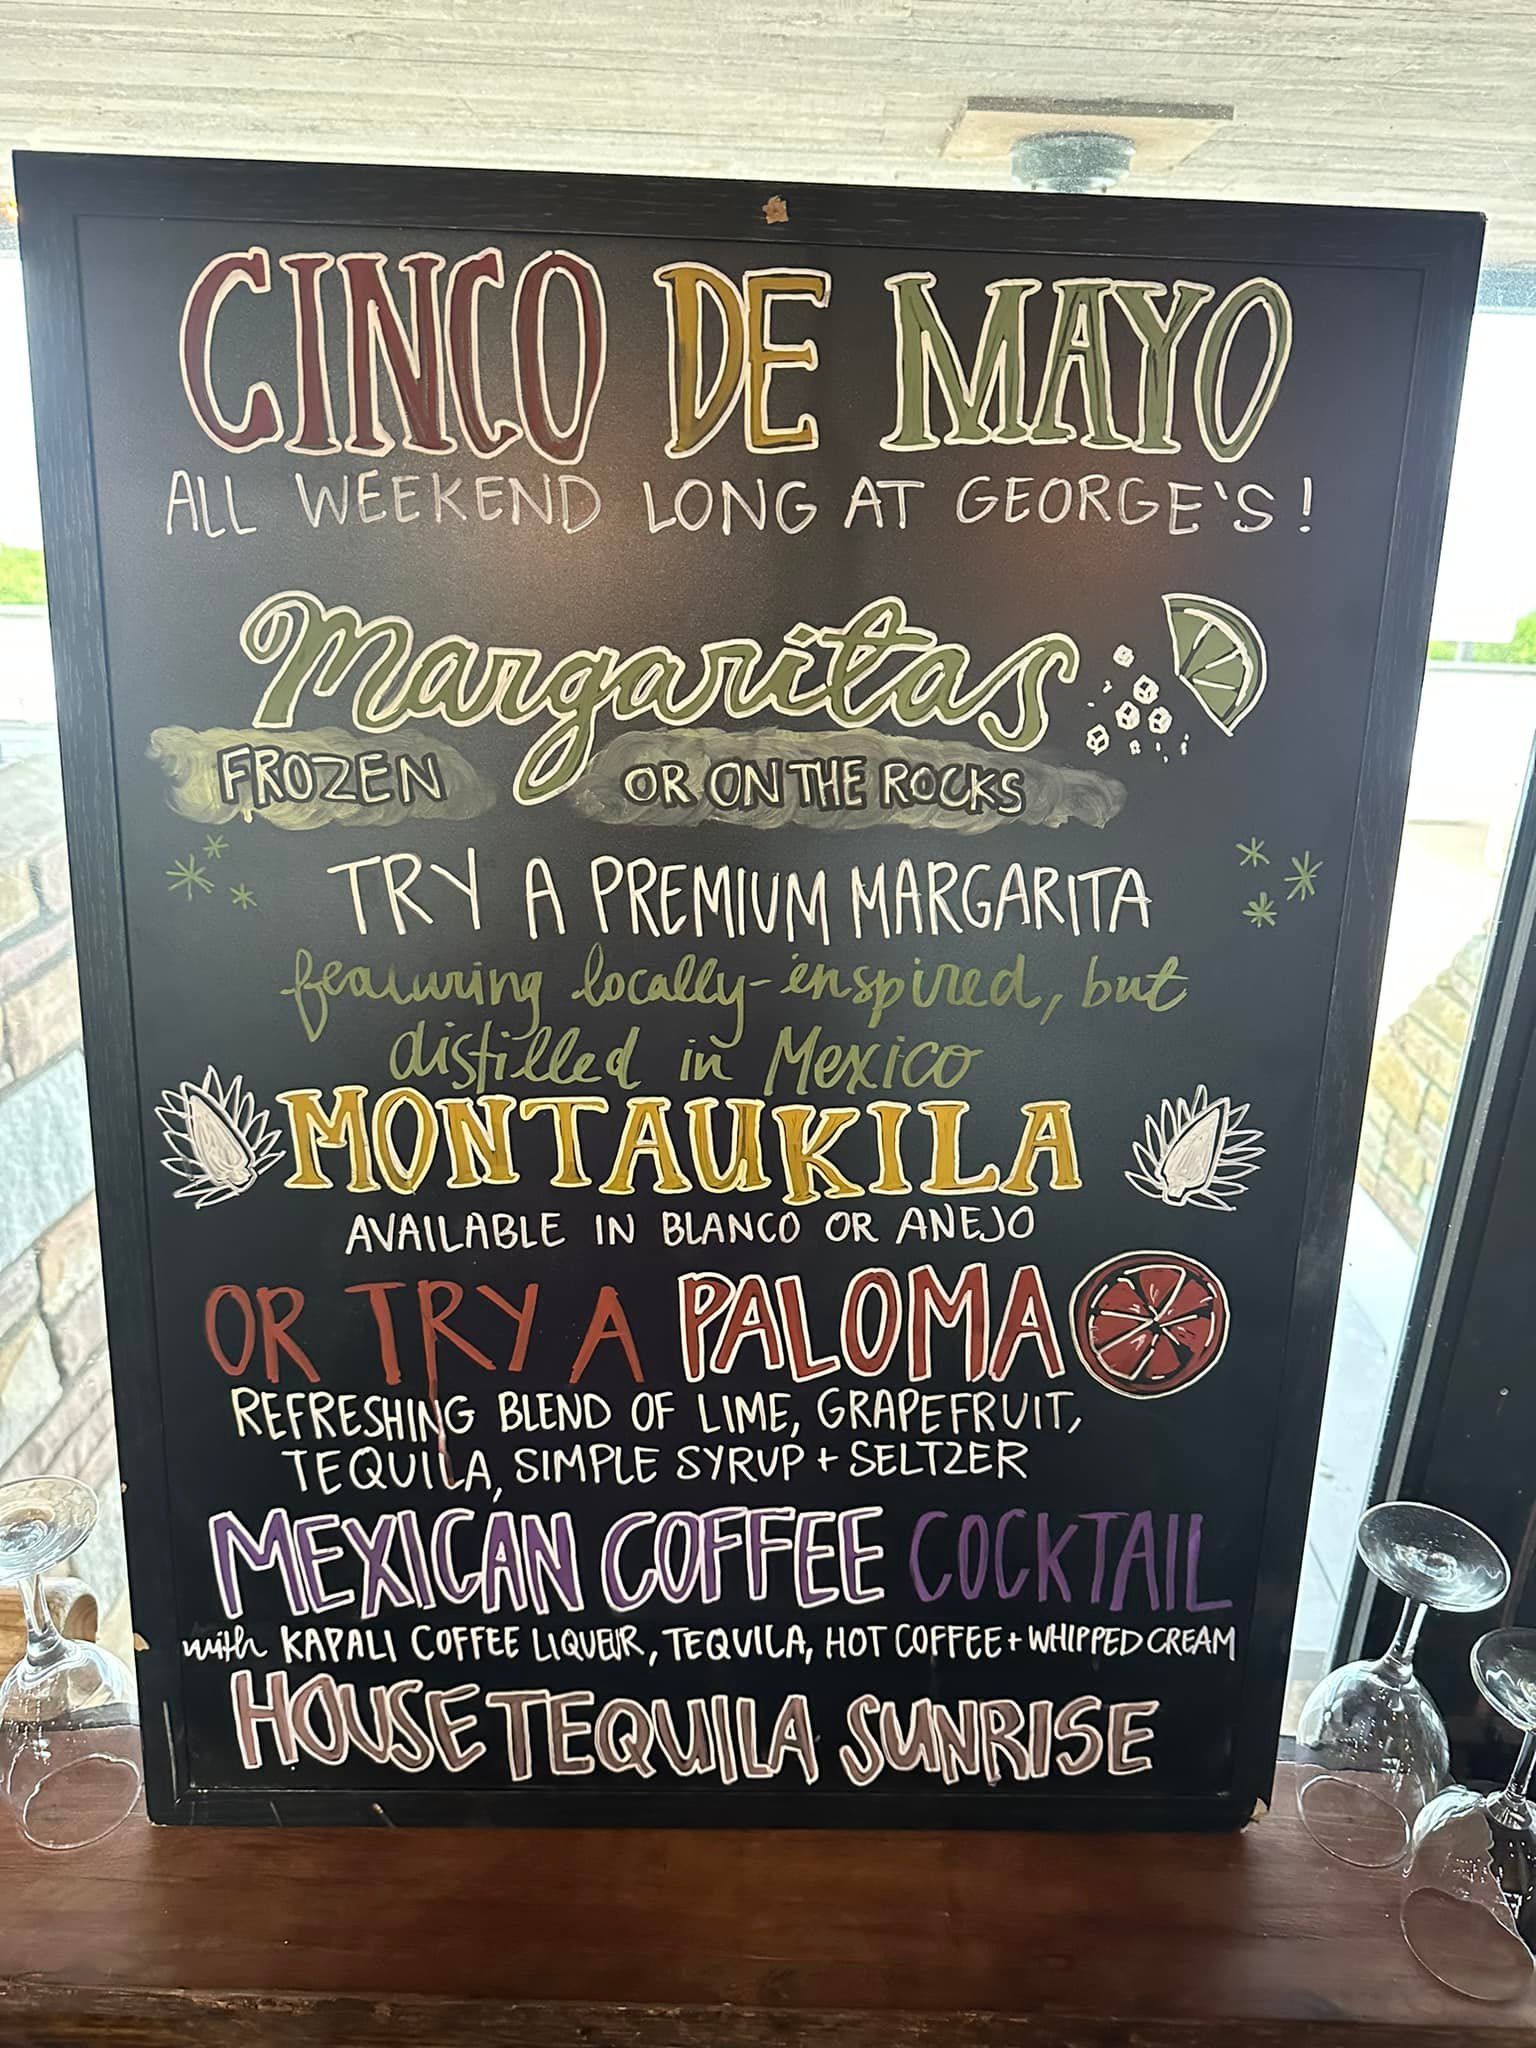 CINCO DE MAYO
ALL WEEKEND LONG AT GEORGE'S!
Margaritas
FROZEN OR ON THE ROCKS
TRY A PREMIUM MARGARITA
featuring locally-inspired, but
distilled in Mexico
MONTAUKILA
AVAILABLE IN BLANCO OR ANEJO
OR TRY A PALOMA
REFRESHING BLEND OF LIME, GRAPEFRUIT,
TEQUILA, SIMPLE SYRUP + SELTZER
MEXICAN COFFEE COCKTAIL
with KAPALI COFFEE LIQUEUR, TEQUILA, HOT COFFEE + WHIPPED CREAM
HOUSE TEQUILA SUNRISE